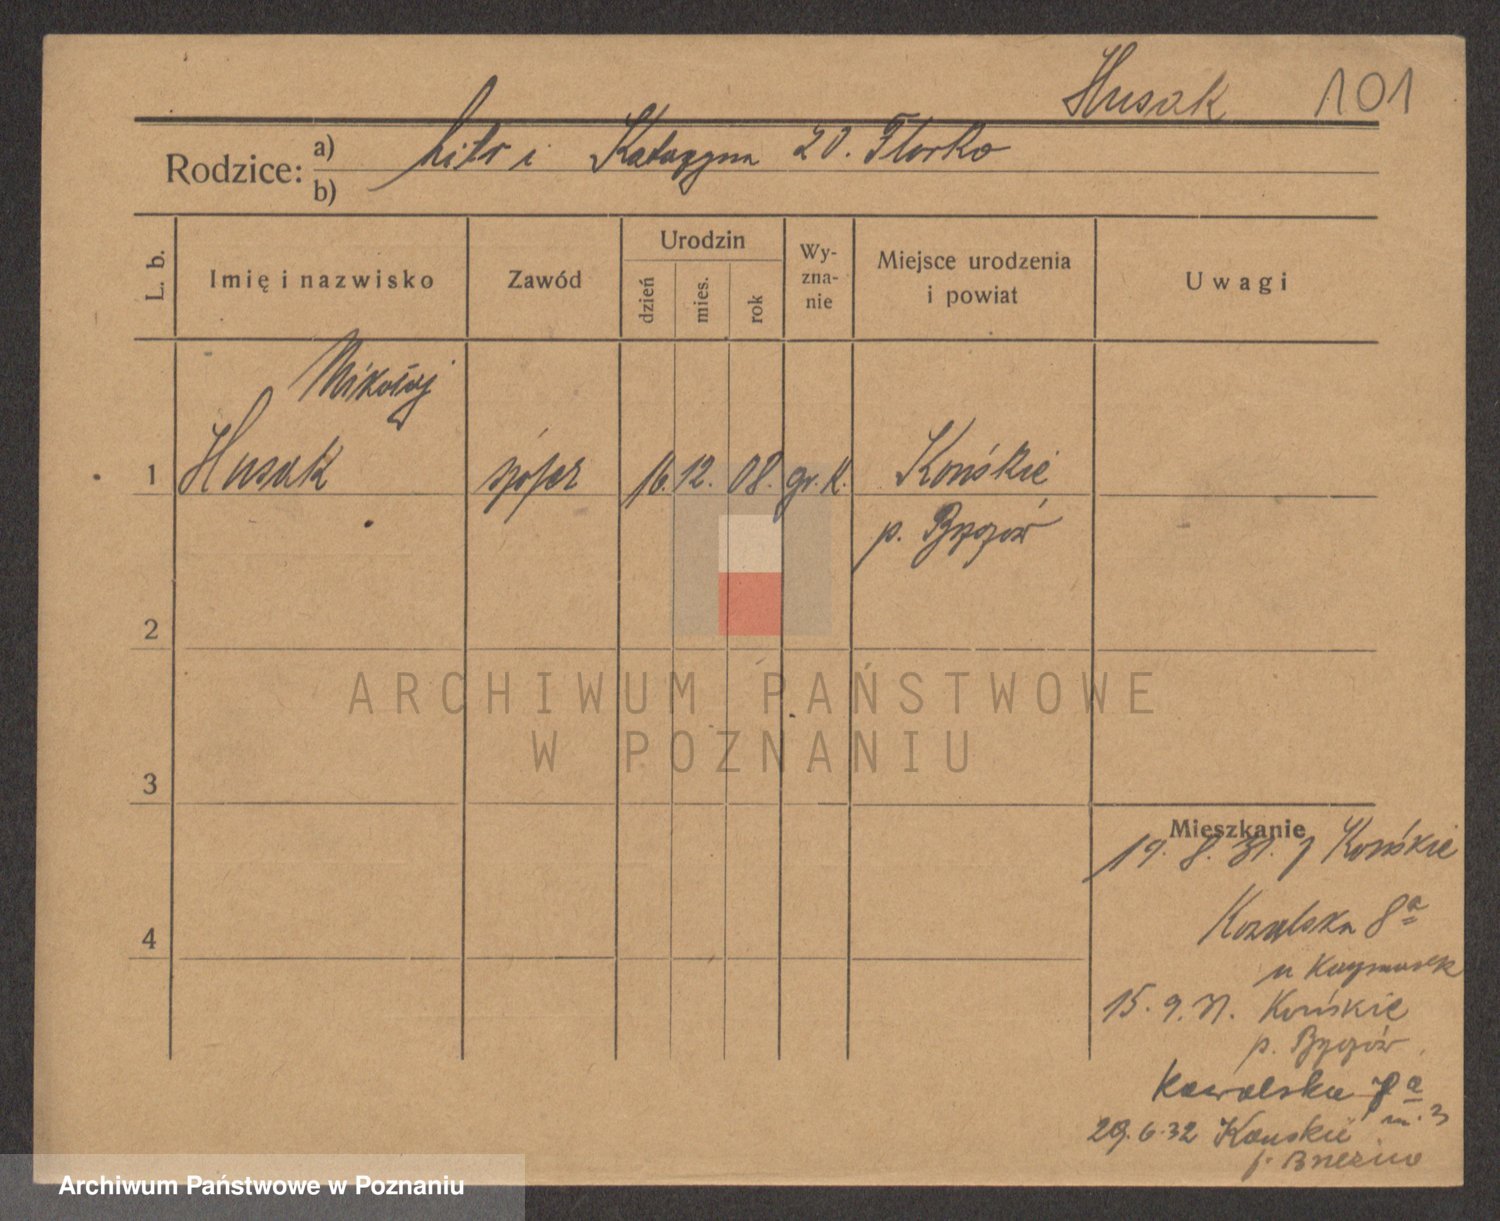 Husak 101
Rodzice: a) i Katarzyna zd. Florko
b)
L. b. Imię i nazwisko Zawód Urodzin dzień mies. rok Wy-zna-nie Miejsce urodzenia i powiat Uwagi
Mikołaj
1 Husak szofer 16. 12. 08. gr. k. Końskie
p. Brzozów
2
3
4
Mieszkanie
19. 8. 31. z Końskie
Kowalska 8a
u Kaczmarek
15. 9. 31. Końskie
p. Brzozów
Kowalska 8a m. 3
29. 6. 32 Końskie
p.
ARCHIWUM PAŃSTWOWE
W POZNANIU
Archiwum Państwowe w Poznaniu